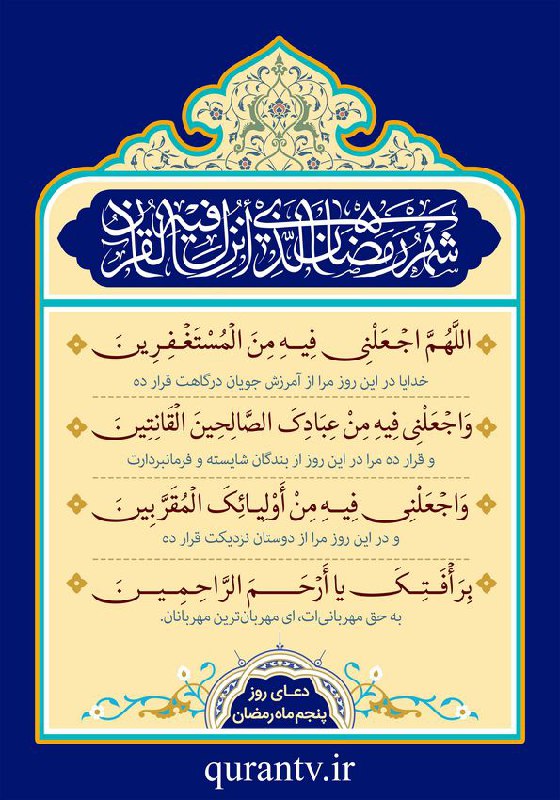 شَهْرُ رَمَضَانَ الَّذِي أُنْزِلَ فِيهِ الْقُرْآنُ
اللَّهُمَّ اجْعَلْنِي فِيهِ مِنَ الْمُسْتَغْفِرِينَ
خدایا در این روز مرا از آمرزش جویان درگاهت قرار ده
وَاجْعَلْنِي فِيهِ مِنْ عِبَادِكَ الصَّالِحِينَ الْقَانِتِينَ
و قرار ده مرا در این روز از بندگان شایسته و فرمانبردارت
وَاجْعَلْنِي فِيهِ مِنْ أَوْلِيائِكَ الْمُقَرَّبِينَ
و در این روز مرا از دوستان نزدیکت قرار ده
بِرَأْفَتِكَ يا أَرْحَمَ الرَّاحِمِينَ
به حق مهربانی‌ات، ای مهربان‌ترین مهربانان.
دعای روز
پنجم ماه رمضان
qurantv.ir